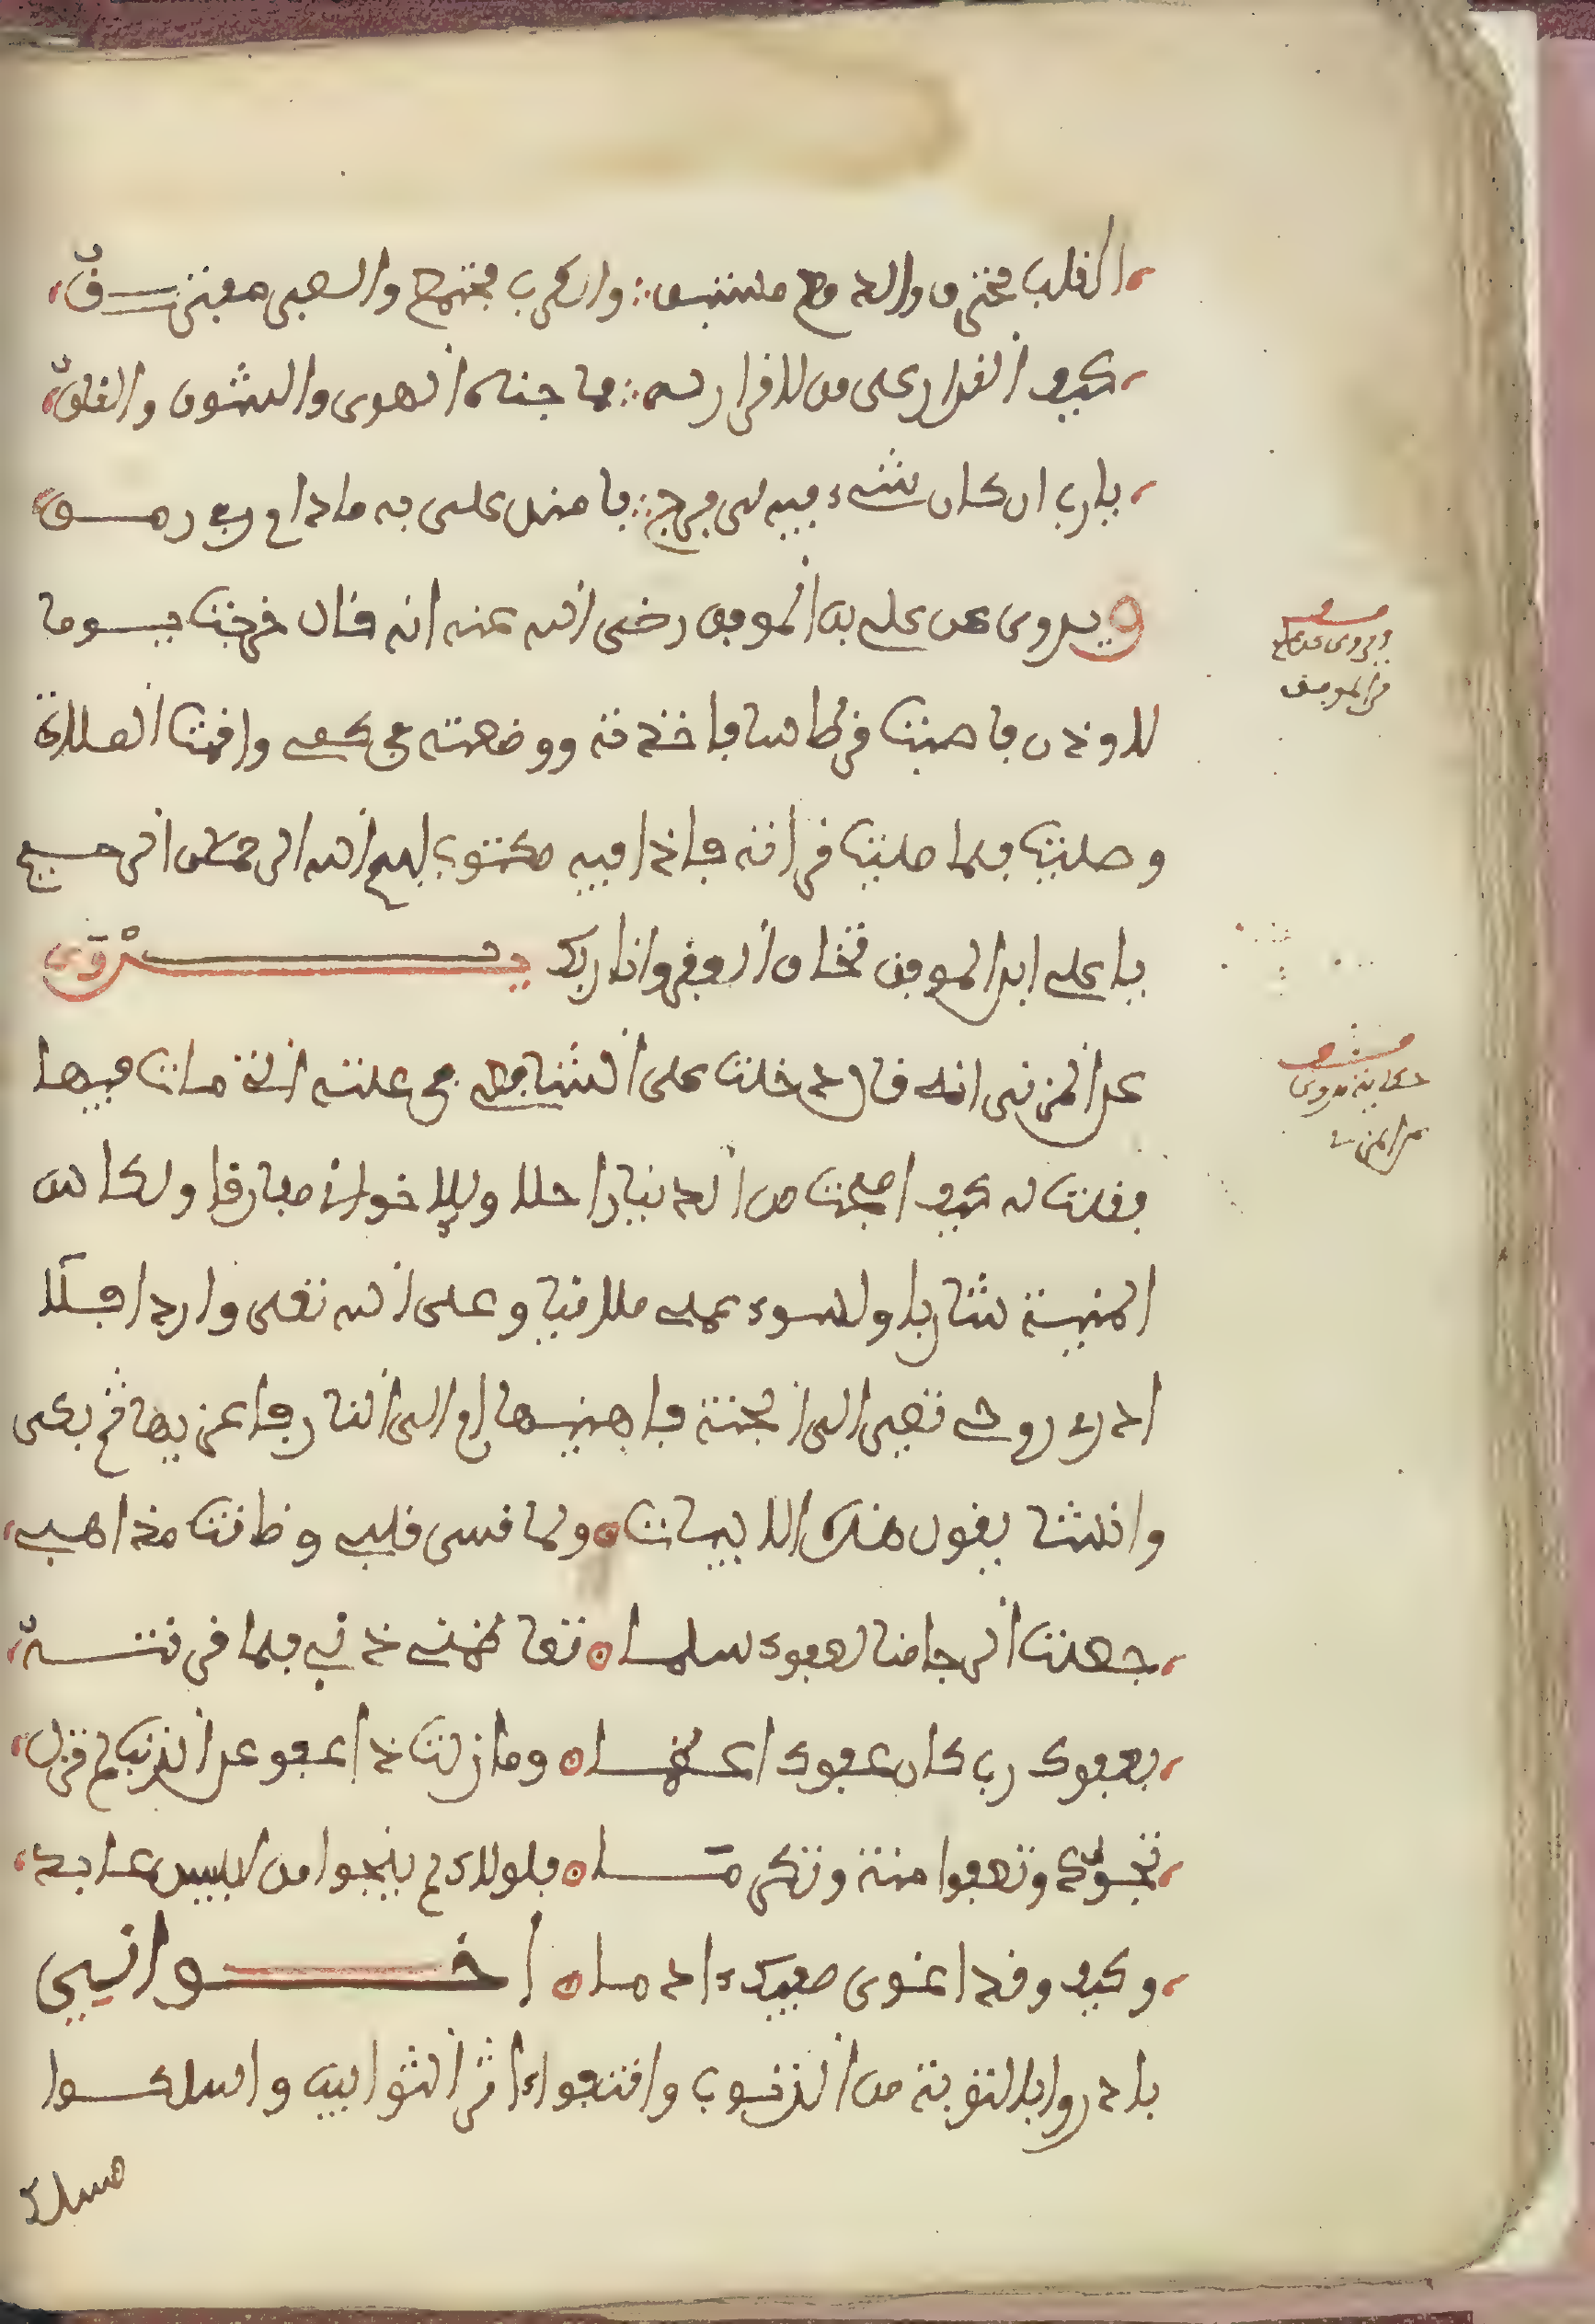 القلب محترق والدمع مستبق ∴ والكرب مجتمع والصبر مفترق
كيف القرار على من لا قرار له ∴ مما جناه الهوى والشوق والقلق
يا رب ان كان شيء فيه لي فرج ∴ فامنن علي به ما دام بي رمق
ويروى عن علي بن الموفق رضي الله عنه انه قال خرجت يوما
لاوذن فاصبت قرطاسا فاخذته ووضعته في كمي واقمت الصلاة
وصليت فلما صليت قراته فاذا فيه مكتوب بسم الله الرحمان الرحيم
يا علي ابن الموفق تخاف الفقر وانا ربك يروى
عن المزني انه قال دخلت على الشافعي في علته التي مات فيها
فقلت له كيف اصبحت قال اصبحت من الدنيا راحلا وللاخوان مفارقا ولكاس
المنية شاربا ولسوء عملي ملاقيا وعلى الله تعلى واردا فلا
ادري روحي تصير الى الجنة فاهنيها ام الى النار فاعزيها ثم بكى
وانشا يقول هذه الابيات ⊙ ولما قسى قلبي وضاقت مذاهبي
جعلت الرجا منا لعفوك سلما ⊙ تعاظمني ذنبي فلما قرنته
بعفوك رب كان عفوك اعظما ⊙ وما زلت ذا عفو عن الذنب لم تزل
تجود وتعفوا منة وتكرما ⊙ فلولاك لم ينجوا من ابليس عابد
وكيف وقد اغوى صفيك ءادما ⊙ اخواني
بادروا بالتوبة من الذنوب واقتفوا ءاثر التوابين واسلكوا
مسلك
ويروى عن علي
بن الموفق
حكاية مروى
عن المزني